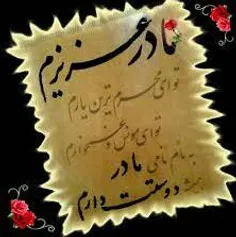 مادر عزیزم
تو ای محرم ترین یارم
تو ای مونس و غمخوارم
به نام نامی مادر
همیشه دوستت دارم